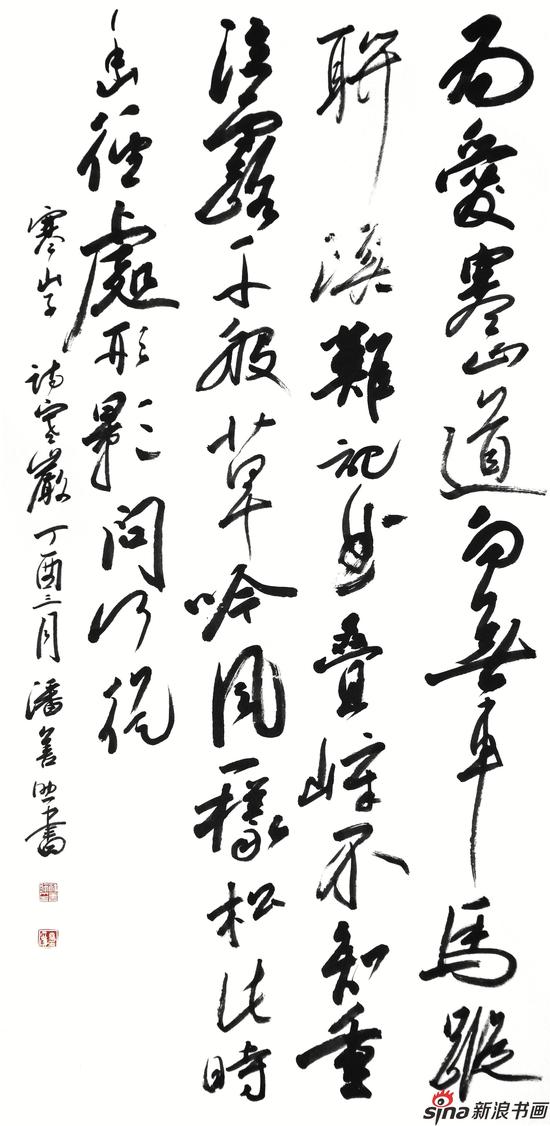 为愛寒山道而無車馬蹤
聯溪難記曲叠嶂不知重
泣露千般草吟風一樣松此時
迷徑處形影問何從
寒山子詩寒巖丁酉三月潘善助書
sina新浪书画